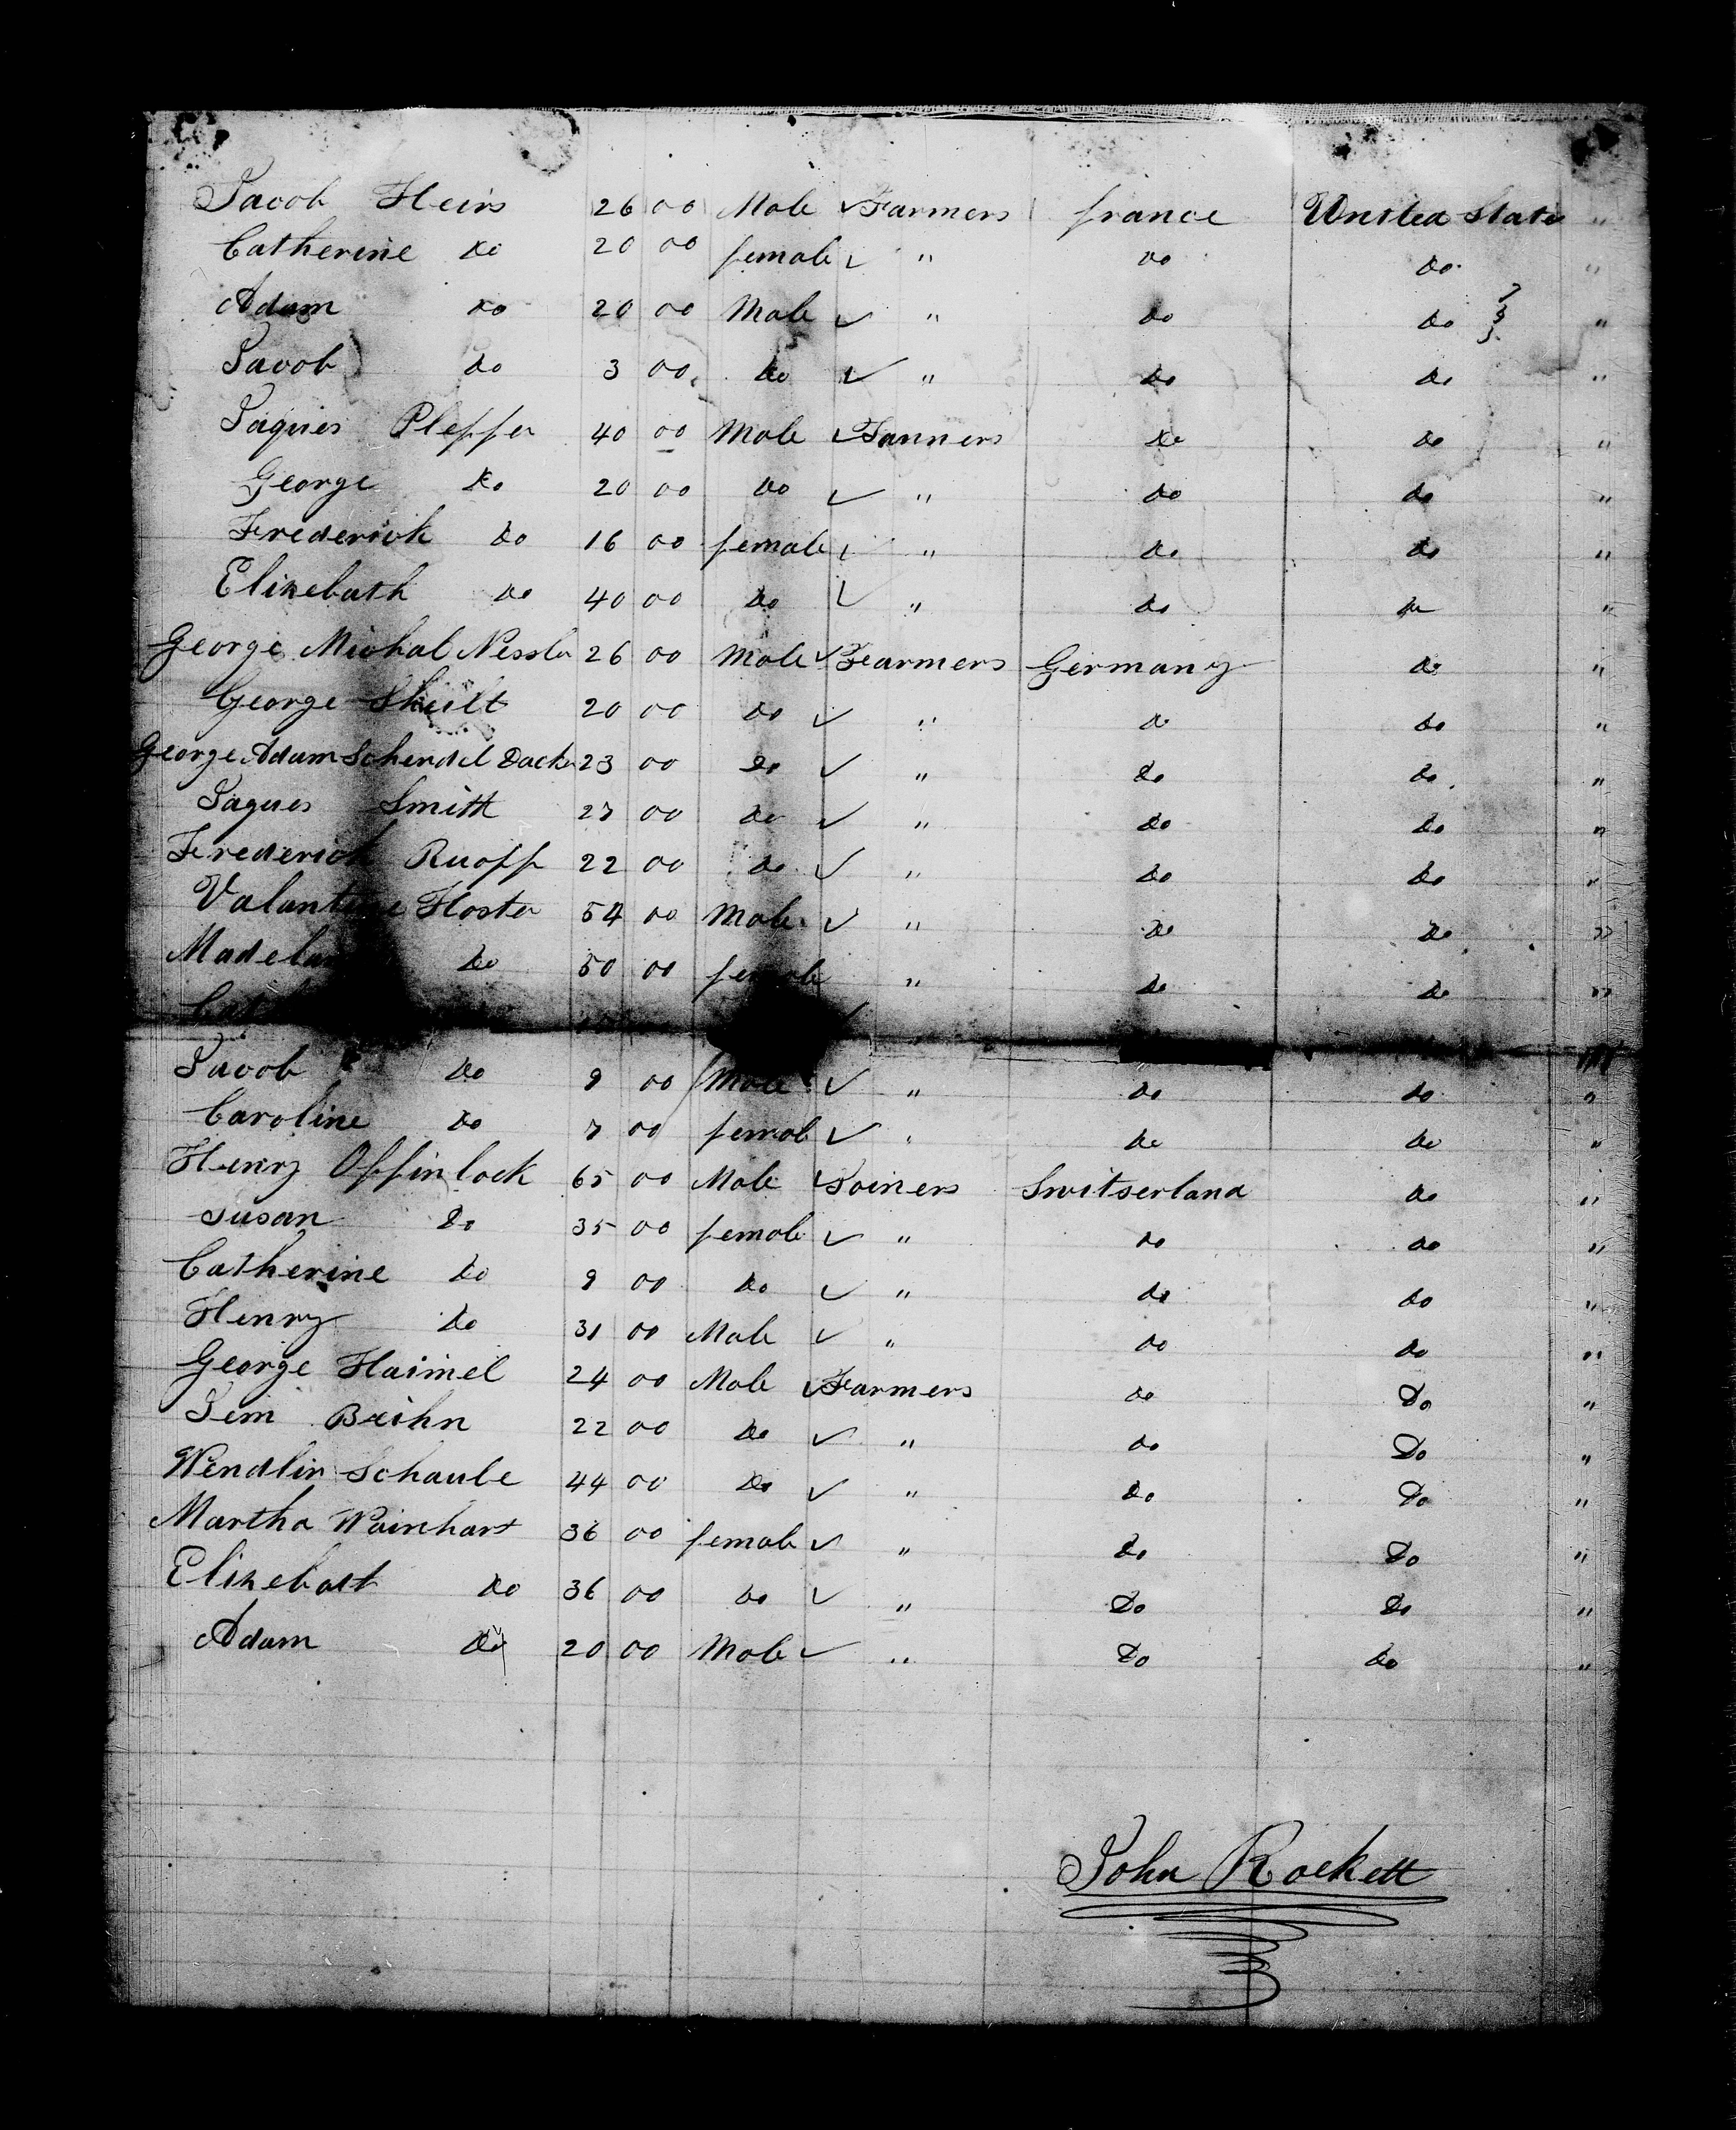 Jacob Heirs 26 00 Male ✓ Farmers france United States "
Catherine do 20 00 female ✓ " do do "
Adam do 20 00 Male ✓ " do do "
Jacob do 3 00 do ✓ " do do "
Jaques Pleffer 40 00 Male ✓ Tanners do do "
George do 20 00 do ✓ " do do "
Frederick do 16 00 female ✓ " do do "
Elizebath do 40 00 do ✓ " do do "
George Michal Nessler 26 00 Male ✓ Fearmers Germany do "
George 20 00 do ✓ " do do "
George Adam Schendel Dacker 23 00 do ✓ " do do "
Jaques Smith 27 00 do ✓ " do do "
Frederick Ruoff 22 00 do ✓ " do do "
Valantine Hoster 54 00 Male ✓ " do do "
do 50 00 female " do do "
Jacob do 9 00 Male ✓ " do do "
Caroline do 7 00 femal ✓ " do do "
Henry Offinlock 65 00 Male ✓ Joiners Switserland do "
Susan do 35 00 female ✓ " do do "
Catherine do 9 00 do ✓ " do do "
Henry do 31 00 Male ✓ " do do "
George Haimel 24 00 Male ✓ Farmers do Do "
Jem Brihn 22 00 do ✓ " do Do "
Wendlin Schaule 44 00 do ✓ " do Do "
Martha Wainhart 36 00 female ✓ " do Do "
Elizebath do 36 00 do ✓ " Do Do "
Adam do 20 00 Male ✓ " Do do "
John Rockett